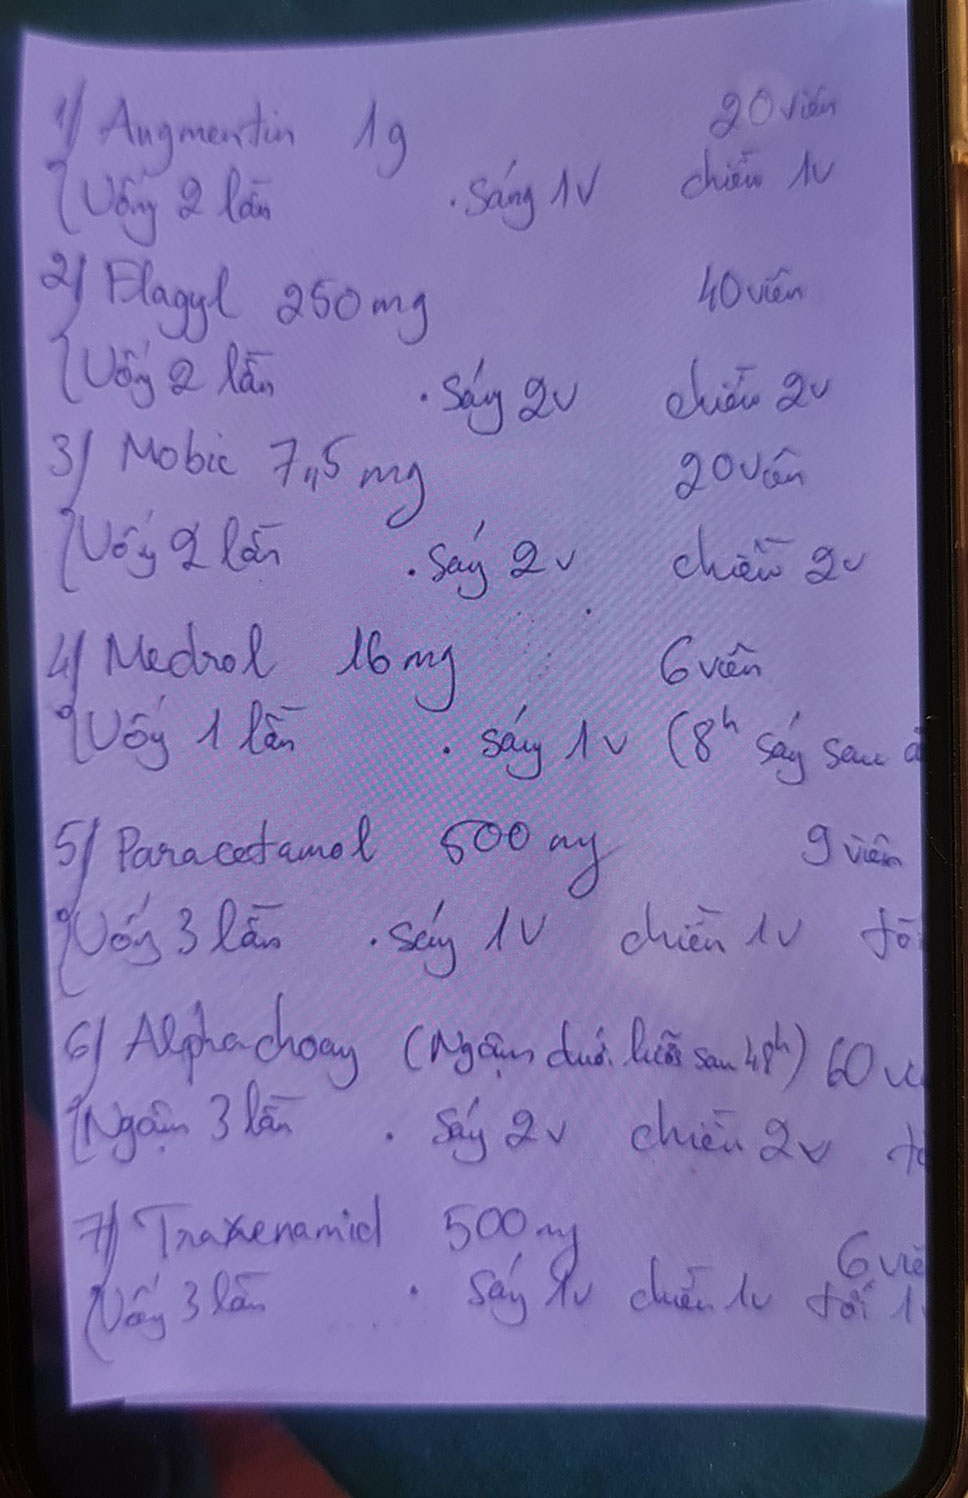 1/ Augmentin 1g 20 viên
Uống 2 lần . Sáng 1v chiều 1v
2/ Flagyl 250mg 40 viên
Uống 2 lần . Sáng 2v chiều 2v
3/ Mobic 7,5 mg 20 viên
Uống 2 lần . Sáng 2v chiều 2v
4/ Medrol 16 mg 6 viên
Uống 1 lần . Sáng 1v (8h sáng sau
5/ Paracetamol 500 mg 9 viên
Uống 3 lần . Sáng 1v chiều 1v
6/ Alphachoay (Ngậm dưới lưỡi sau 48h) 60
Ngậm 3 lần . Sáng 2v chiều 2v
7/ Traxenamid 500mg 6
Uống 3 lần . Sáng 1v chiều 1v tối 1